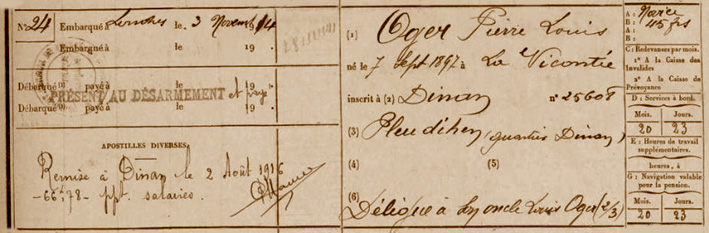 N° 24 Embarqué à Londres le 3 Novembre 1914
Embarqué à le 19
Débarqué payé à le 19
PRÉSENT AU DÉSARMEMENT et payé
Débarqué payé à le 19
APOSTILLES DIVERSES.
Remise à Dinan le 2 Août 1916
-66f,78- ppt. salaires.
(1) Oger Pierre Louis
né le 7 Sept 1897 à La Vicomté
inscrit à (2) Dinan n° 25608
(3) Pleudihen (quartier Dinan)
(4) (5)
(6)
Délégué à son oncle Louis Oger (2/3)
A: Novice
B:
A: 45 frs
B:
C: Redevances par mois.
1° A la Caisse des
Invalides
2° A la Caisse de
Prévoyance
D: Services à bord.
Mois. Jours.
20 23
E: Heures de travail
supplémentaires.
heures, à
G: Navigation valable
pour la pension.
Mois. Jours.
20 23